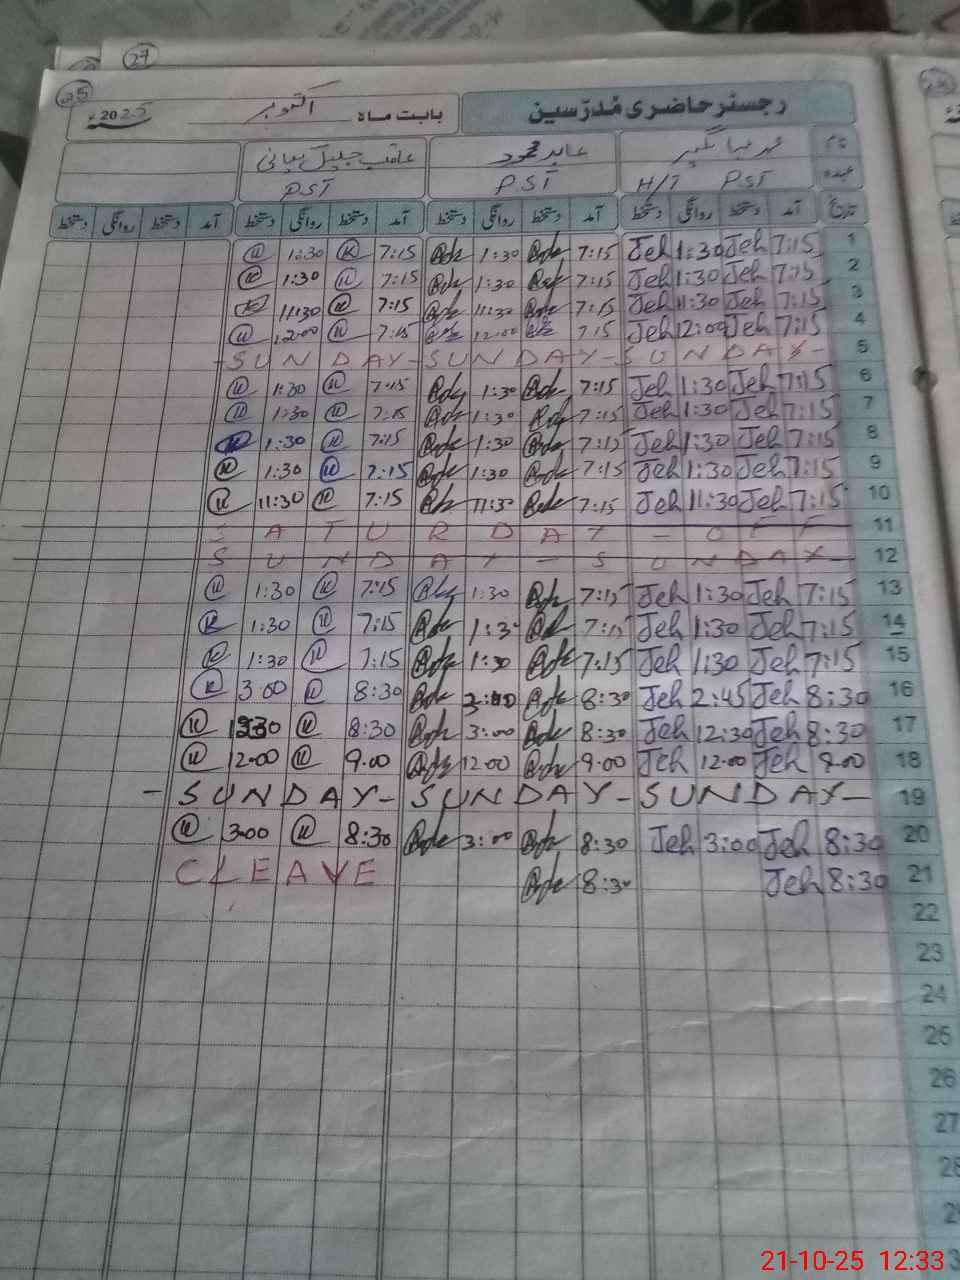 27
25
رجسٹر حاضری مُدرّسین
بابت ماہ اکتوبر 2025ء
نام محمد جہانگیر عابد محمود عاقب جلیل کیانی
عہدہ H/T PST PST PST
تاریخ آمد دستخط روانگی دستخط آمد دستخط روانگی دستخط آمد دستخط روانگی دستخط آمد دستخط روانگی دستخط
1:30 7:15 1:30 7:15 Jeh 1:30 Jeh 7:15 1
1:30 7:15 1:30 7:15 Jeh 1:30 Jeh 7:15 2
11:30 7:15 11:30 7:15 Jeh 11:30 Jeh 7:15 3
12:00 7:15 12:00 7:15 Jeh 12:00 Jeh 7:15 4
-SUNDAY-SUNDAY-SUNDAY- 5
1:30 7:15 1:30 7:15 Jeh 1:30 Jeh 7:15 6
1:30 7:15 1:30 7:15 Jeh 1:30 Jeh 7:15 7
1:30 7:15 1:30 7:15 Jeh 1:30 Jeh 7:15 8
1:30 7:15 1:30 7:15 Jeh 1:30 Jeh 7:15 9
11:30 7:15 11:30 7:15 Jeh 11:30 Jeh 7:15 10
SATURDAY - OFF 11
SUNDAY - SUNDAY- 12
1:30 7:15 1:30 7:15 Jeh 1:30 Jeh 7:15 13
1:30 7:15 1:3 7:15 Jeh 1:30 Jeh 7:15 14
1:30 7:15 1:30 7:15 Jeh 1:30 Jeh 7:15 15
3:00 8:30 8:30 Jeh 2:45 Jeh 8:30 16
8:30 3:00 8:30 Jeh 12:30 Jeh 8:30 17
12:00 9:00 12:00 9:00 Jeh 12:00 Jeh 9:00 18
-SUNDAY-SUNDAY-SUNDAY- 19
3:00 8:30 3:00 8:30 Jeh 3:00 Jeh 8:30 20
C LEAVE 8:30 Jeh 8:30 21
22
23
24
25
26
27
21-10-25 12:33